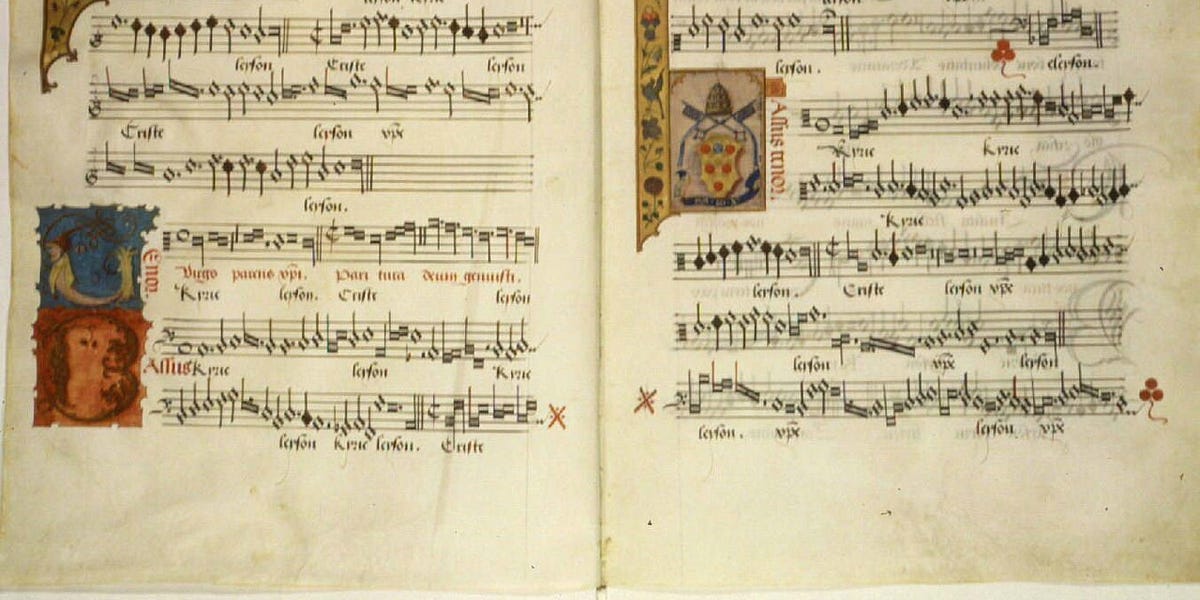 leyson Criste leyson
Criste leyson xpe
leyson.
Enor
Virgo parens xpi. Pari tura deum genuisti.
Kyrie leyson. Criste leyson
Assus Kyrie leyson Kyrie
leyson Kyrie leyson. Criste
leyson. eleyson.
Assus tenor.
Kyrie Kyrie
Kyrie
leyson. Criste leyson xpe
leyson xpe leyson
leyson. xpe leyson xpe